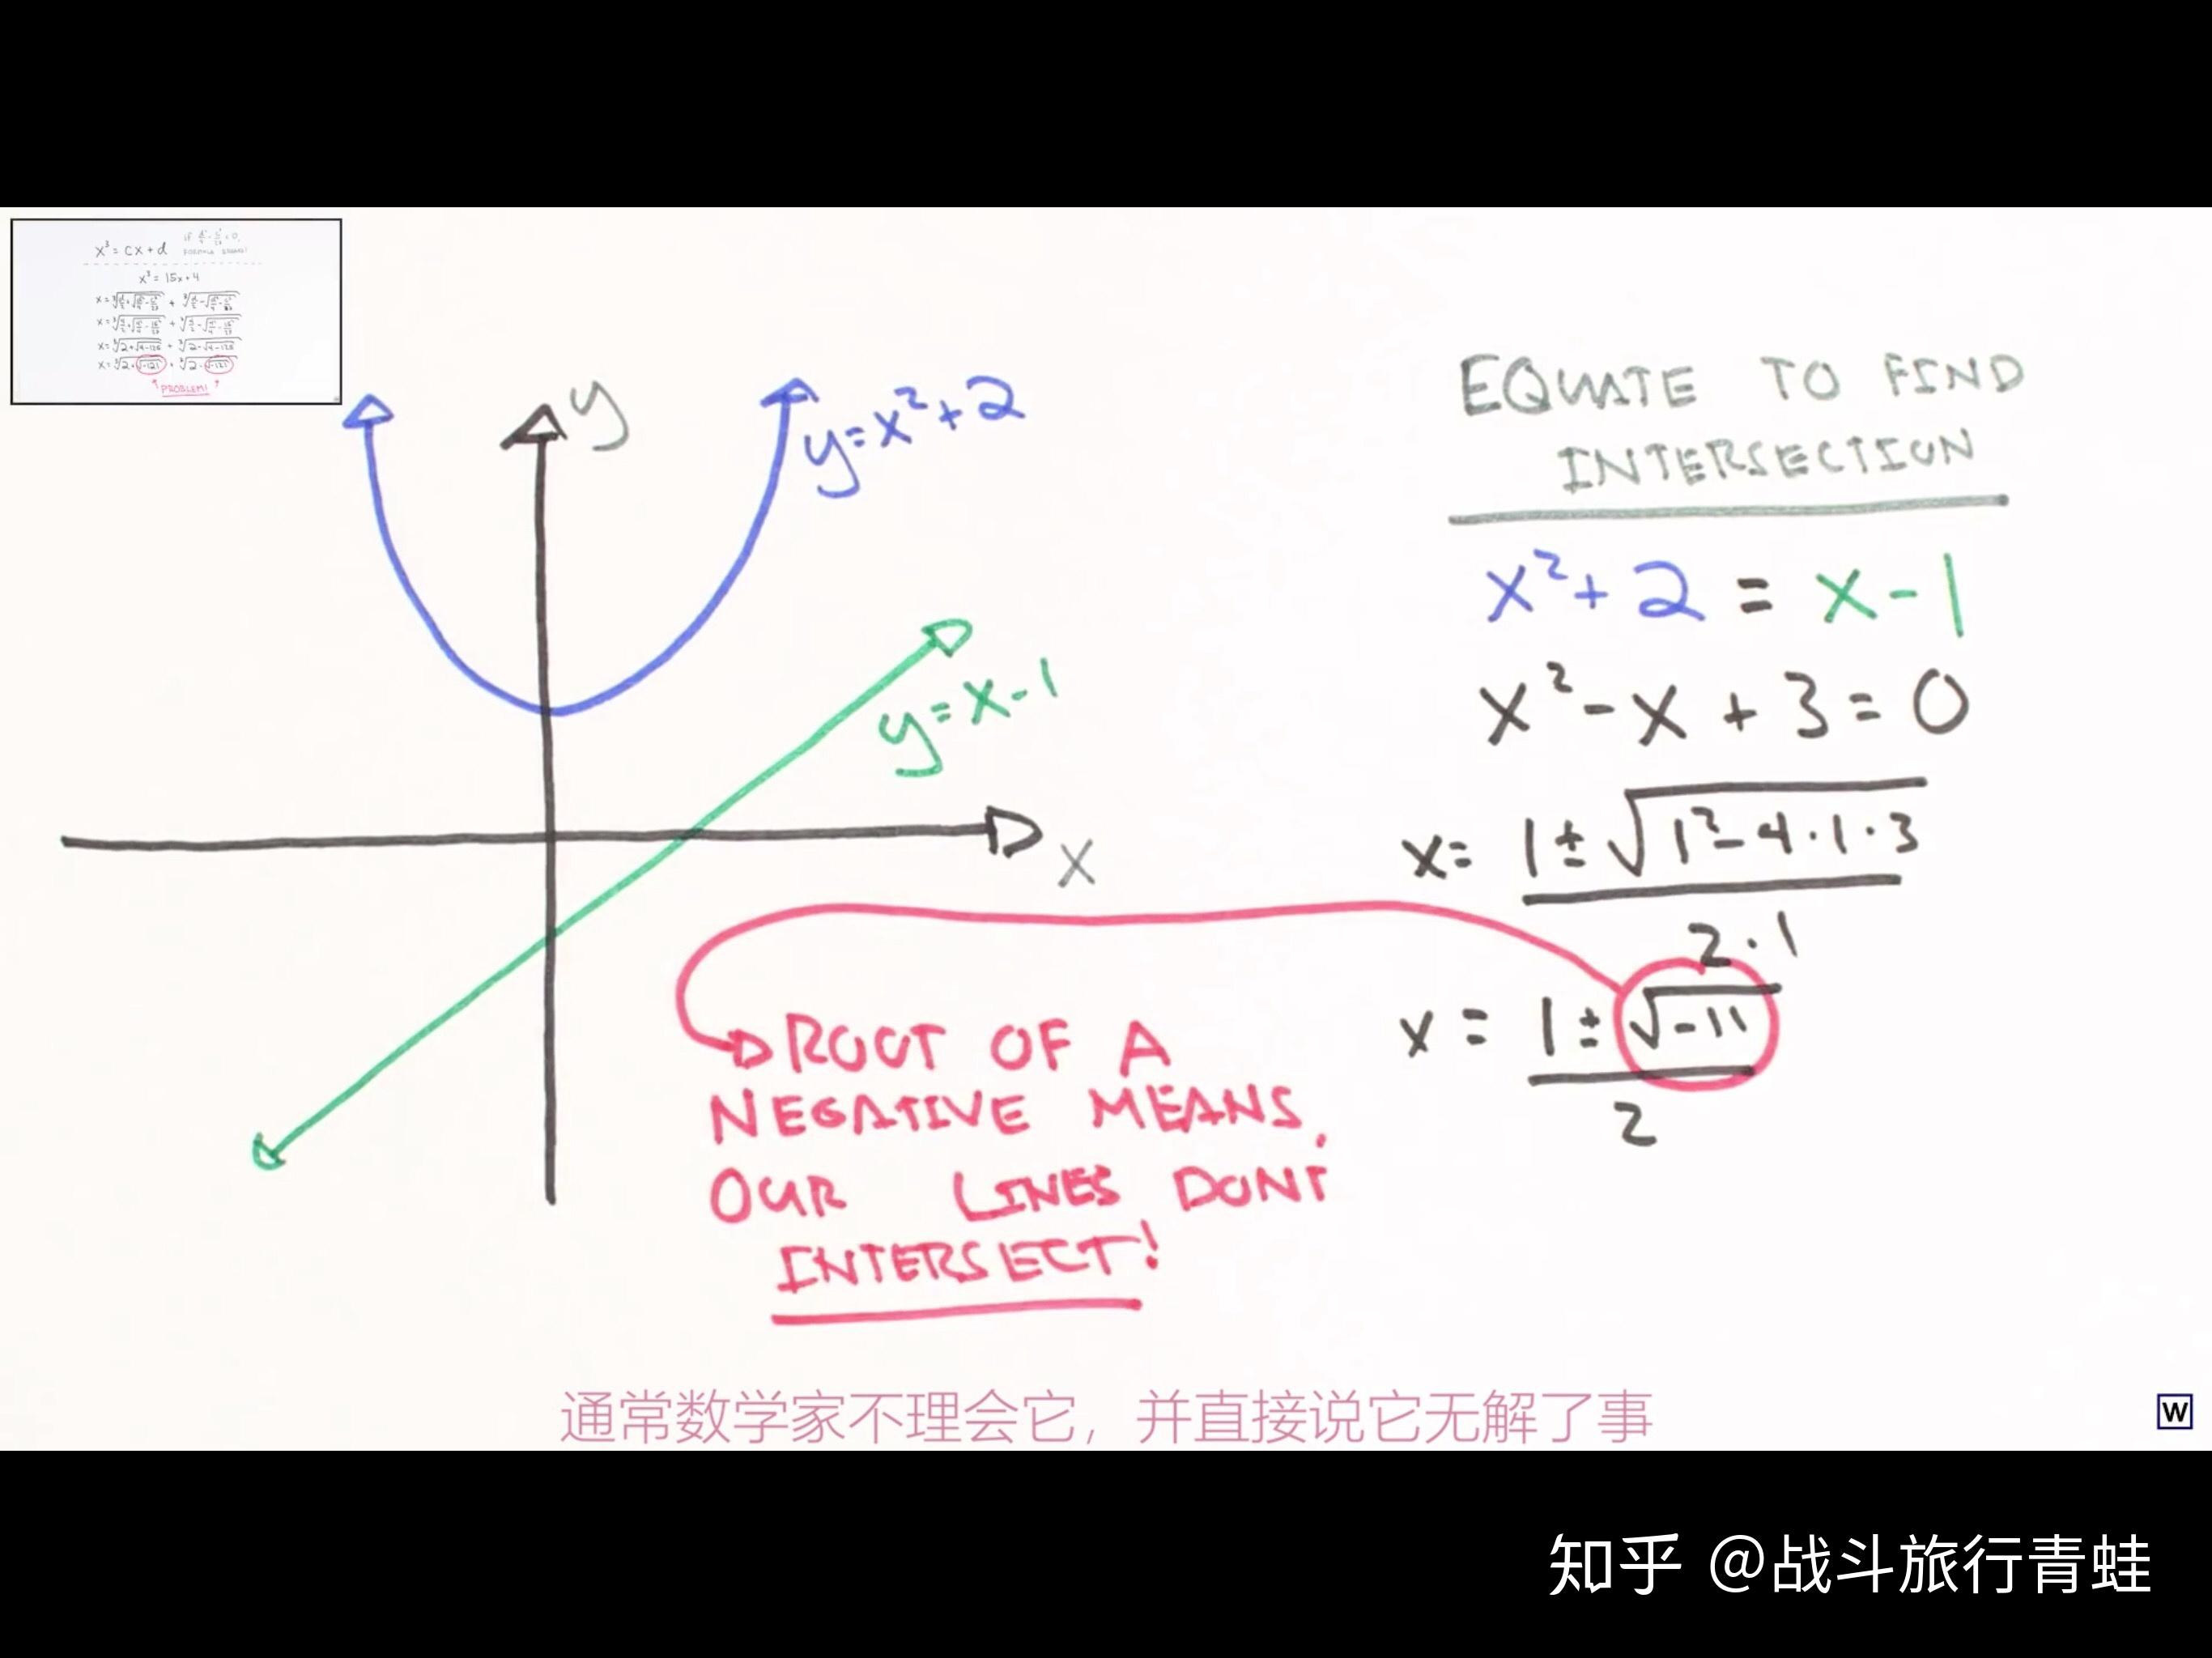 x³ = cx + d
x³ = 15x + 4
PROBLEM!
y
y=x²+2
y=x-1
x
EQUATE TO FIND
INTERSECTION
x²+2 = x-1
x²-x+3=0
x= 1±√1²-4·1·3
2·1
x = 1±√-11
2
ROOT OF A
NEGATIVE MEANS
OUR LINES DONT
INTERSECT!
通常数学家不理会它，并直接说它无解了事
W
知乎 @战斗旅行青蛙